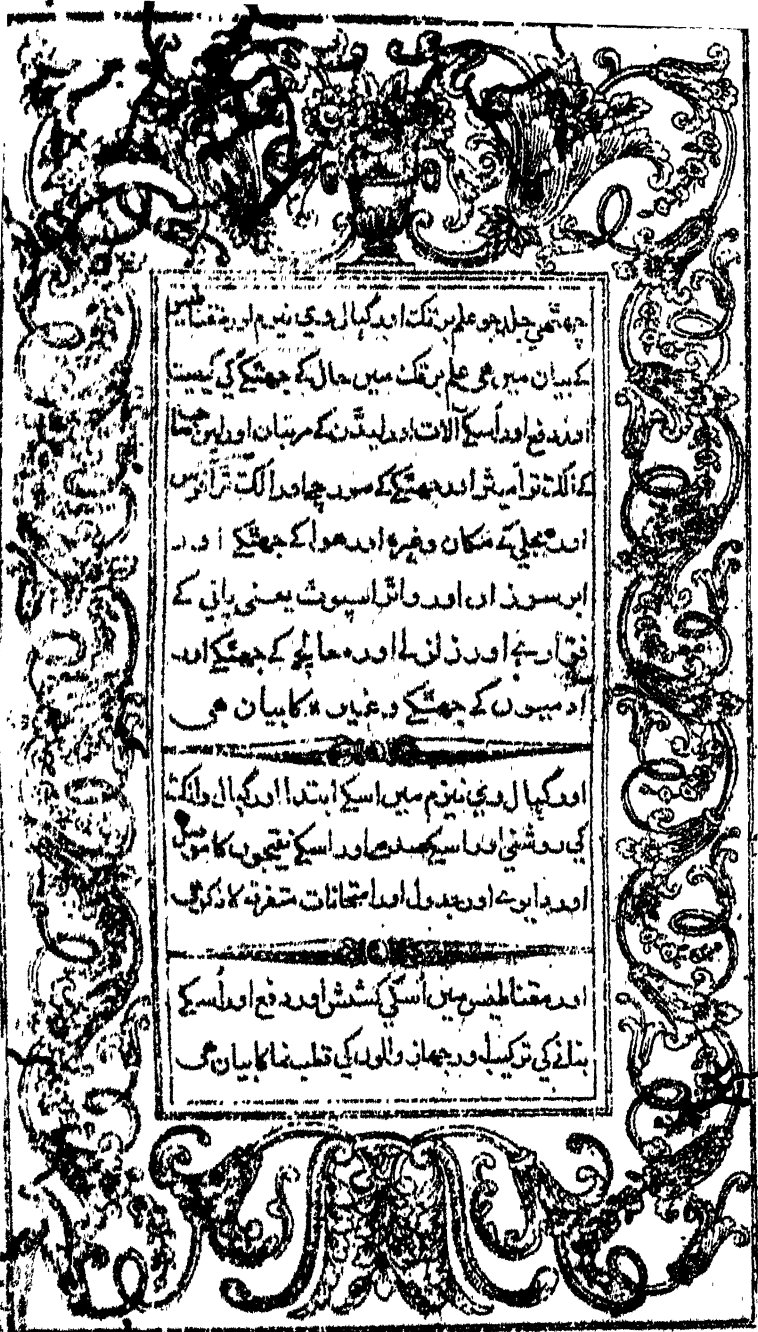 چھٹھي جلد جو علم برقک اور گيال وي نيزم اور مقناطيس
کے بيان ميں هى علم برقک ميں حال کے جھٹکے کي کيفيت
اور دفع اور اُسکے آلات اور ليڈن کے مرتبان اور ليں
کے الکٹراميٹر اور جھٹکے کے مورچے اور الکٹرافرس
اور بجلي کے مکان وغيرہ اور هوا کے جھٹکے اور
ابر سوزاں اور واٹر اسپوٹ يعنى پاني کے
فوّارے اور زلزلے اور معالجے کے جھٹکے اور
ادميوں کے جھٹکے وغيرہ کا بيان هى
اور گيال وي نيزم ميں اسکے ابتدا اور گيال وانک
کي روشني اور اسکے صدمے اور اسکے نتيجوں کا
اور دايرے اور جدول اور امتحانات متفرقہ کا ذکر هى
اور مقناطيس ميں اُسکي کشش اور دفع اور اُسکے
بنانے کي ترکيب اور جهاز والوں کي قطب نما کا بيان هى